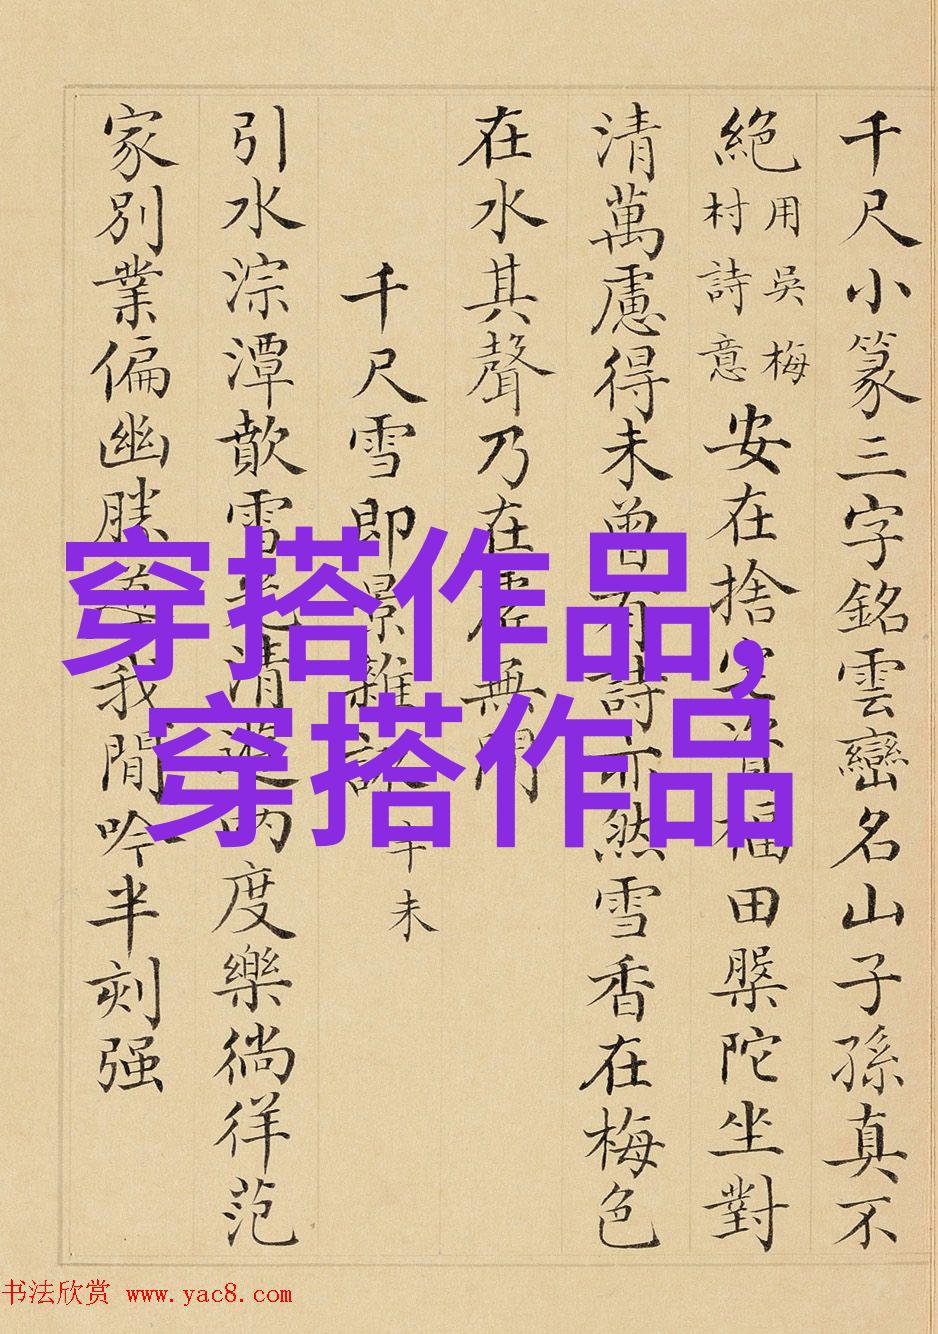 千尺小篆三字銘雲巒名山子孫真不
絕用吳梅村詩意安在捨定資福田槃陀坐對
清萬慮得未曾有詩亦然雪香在梅色
在水其聲乃在虛無間
千尺雪即景雜詠辛未
引水淙潭歕雪
清
度樂徜徉范
家別業偏幽勝
我閒吟半刻强
穿搭作品,
穿搭作品
书法欣赏 www.yac8.com